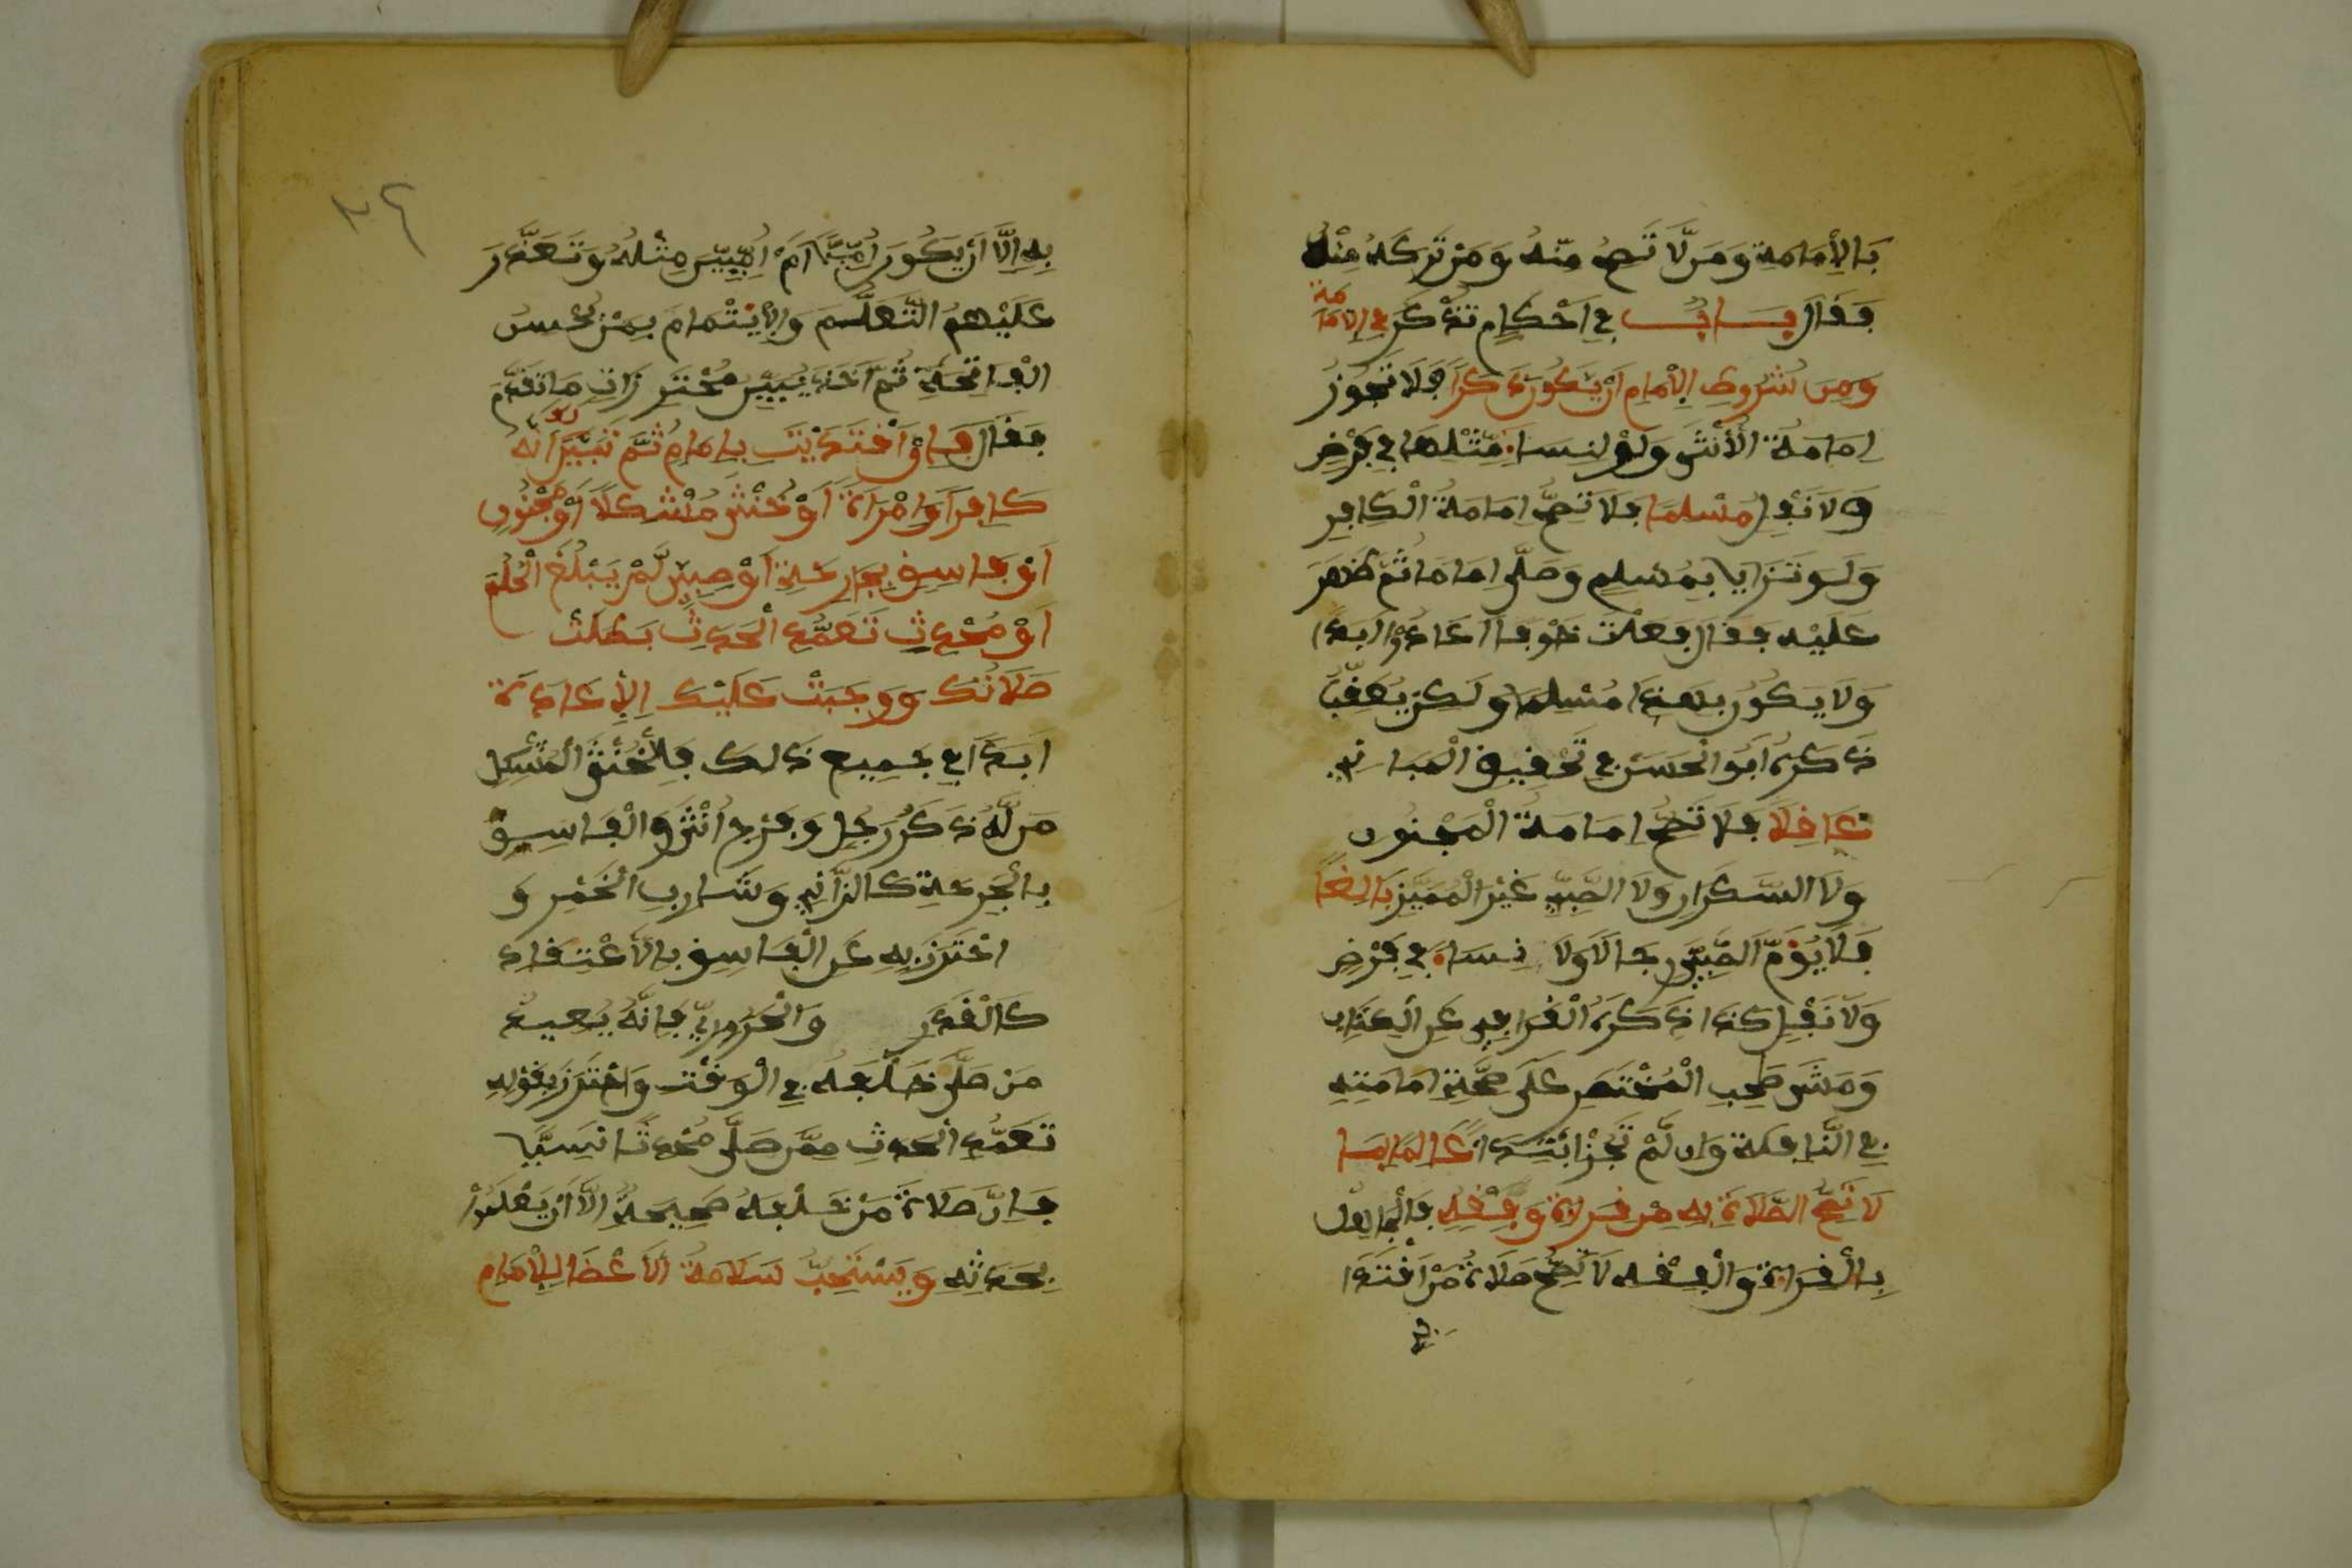 بَالْإِمَامَةِ وَمَن لَّا تَصِحُّ مِنْهُ وَمَنْ تُرَكَهُ مِنْهُ
فَقَالَ بَابٌ فِي أَحْكَامٍ تُذْكَرُ فِي الْإِمَامَةِ
وَمِن شُرُوطِ الْإِمَامِ أَنْ يَكُونَ ذَكَرًا فَلَا تَجُوزُ
إِمَامَةُ الْأُنْثَى وَلَوْ لِنِسَاءٍ مِّثْلِهَا فِي فَرْضٍ
وَلَا نَفْلٍ مُسْلِمًا فَلَا تَصِحُّ إِمَامَةُ الْكَافِرِ
وَلَوْ تَزَايَا بِمُسْلِمٍ وَصَلَّى إِمَامًا ثُمَّ ظَهَرَ
عَلَيْهِ فَقَالَ فَعَلْتُ خَوْفًا أَعَادُوا أَبَدًا
وَلَا يَكُونُ بِهَذَا مُسْلِمًا وَلَكِنْ
ذَكَرَهُ أَبُو الْحَسَنِ فِي تَحْقِيقِ الْمَبَانِي
عَاقِلًا فَلَا تَصِحُّ إِمَامَةُ الْمَجْنُونِ
وَلَا السَّكْرَانِ وَلَا الصَّبِيِّ غَيْرِ الْمُمَيِّزِ بَالِغًا
فَلَا يَؤُمُّ الصَّبِيُّ رِجَالًا وَلَا نِسَاءً فِي فَرْضٍ
وَلَا نَفْلٍ كَذَا ذَكَرَهُ الْقَرَافِي عَنِ الْكِتَابِ
وَمَشَى صَاحِبِ الْمُخْتَصَرِ عَلَى صِحَّةِ إِمَامَتِهِ
فِي النَّافِلَةِ وَإِن لَّمْ تَجُزْ ابْتِدَاءً عَالِمًا بِمَا
لَا تَصِحُّ الصَّلَاةُ إِلَّا بِهِ مِن قِرَاءَةٍ وَفِقْهٍ فَالْجَاهِلُ
بِالْقِرَاءَةِ وَالْفِقْهِ لَا تَصِحُّ صَلَاةُ مَنْ اقْتَدَا
بِهِ إِلَّا أَنْ يَكُونَ أُمِّيًّا أَمَّ أُمِّيِّينَ مِثْلَهُ وَتَعَذَّرَ
عَلَيْهِمُ التَّعَلُّمُ وَالْإِئْتِمَامُ بِمَنْ يُحْسِنُ
الْفَاتِحَةَ ثُمَّ أَخَذَ يُبَيِّنُ مُحْتَرَزَاتِ مَا تَقَدَّمَ
فَقَالَ فَإِنِ اقْتَدَيْتَ بِإِمَامٍ ثُمَّ تَبَيَّنَ لَكَ أَنَّهُ
كَافِرٌ أَوْ امْرَأَةٌ أَوْ خُنْثَى مُشْكِلًا أَوْ مَجْنُونٌ
أَوْ فَاسِقٌ بِجَارِحَةٍ أَوْ صَبِيٌّ لَّمْ يَبْلُغِ الْحُلُمَ
أَوْ مُحْدِثٌ تَعَمَّدَ الْحَدَثَ بَطَلَتْ
صَلَاتُكَ وَوَجَبَتْ عَلَيْكَ الْإِعَادَةُ
أَبَدًا فِي جَمِيعِ ذَلِكَ فَالْخُنْثَى الْمُشْكِلُ
مَن لَّهُ ذَكَرُ رَجُلٍ وَفَرْجُ أُنْثَى وَالْفَاسِقُ
بِالْجَارِحَةِ كَالزَّانِي وَشَارِبِ الْخَمْرِ وَ
احْتَرَزَ بِهِ عَنِ الْفَاسِقِ بِالْاعْتِقَادِ
كَالْقَدَرِ وَالْحَرُورِيِّ فَإِنَّهُ يُعِيدُ
مَن صَلَّى خَلْفَهُ فِي الْوَقْتِ وَاحْتَرَزَ بِقَوْلِهِ
تَعَمَّدَ الْحَدَثَ مِمَّن صَلَّى مُحْدِثًا نَسِيًّا
فَإِنَّ صَلَاةَ مَنْ خَلْفَهُ صَحِيحَةٌ إِلَّا أَنْ يَعْلَمُوا
بِحَدَثِهِ وَيُسْتَحَبُّ سَلَامَةُ الْأَعْضَاءِ لِلْإِمَامِ